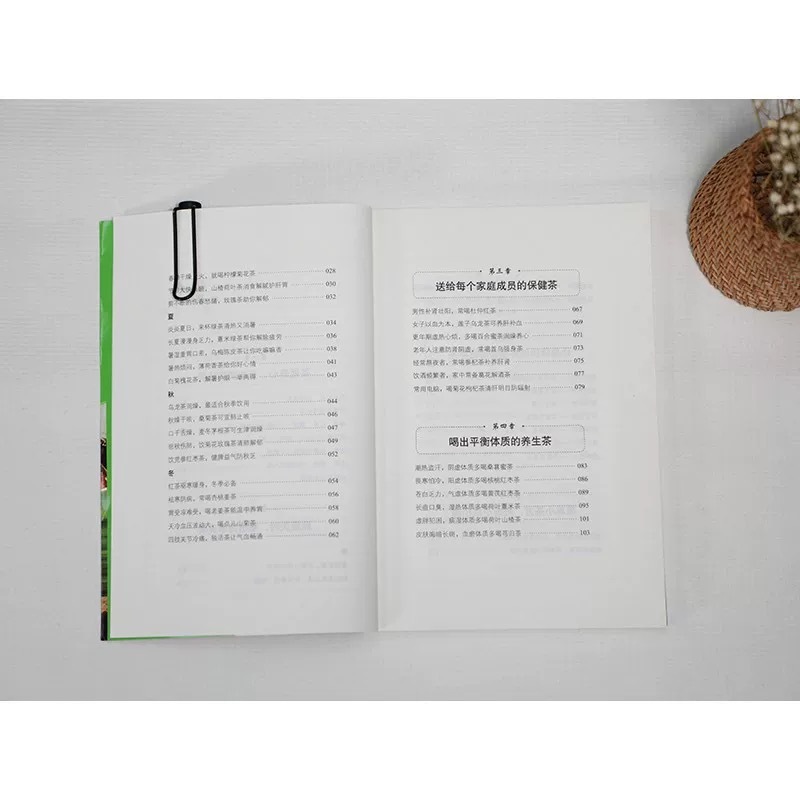 春
火，就喝柠檬菊花茶 028
山楂荷叶茶消食解腻护肝胃 030
伤春愁绪，玫瑰茶助你解郁 032
夏
炎炎夏日，来杯绿茶清热又消暑 034
长夏漫漫身乏力，薏米绿茶帮你解除疲劳 036
暑湿重胃口差，乌梅陈皮茶让你吃嘛嘛香 038
暑热烦闷，薄荷香茶给你好心情 041
白菊槐花茶，解暑护眼一举两得 043
秋
乌龙茶润燥，最适合秋季饮用 044
秋燥干咳，桑菊茶可宣肺止咳 046
口干舌燥，麦冬茅根茶可生津润燥 047
悲秋伤肺，饮菊花玫瑰茶清肺解郁 049
饮党参红枣茶，健脾益气防秋乏 052
冬
红茶驱寒暖身，冬季必备 054
祛寒防病，常喝杏桃姜茶 056
胃受凉难受，喝老姜茶低温中养胃 058
天冷血压波动大，喝点儿山菊茶 060
四肢关节冷痛，独活茶让气血畅通 062
第三章
送给每个家庭成员的保健茶
男性补肾壮阳，常喝杜仲红茶 067
女子以血为本，莲子乌龙茶可养肝补血 069
更年期虚热心烦，多喝百合蜜茶润燥养心 071
老年人注意防肾阴虚，常喝首乌强身茶 073
经常熬夜者，常喝参杞茶补养肝肾 075
饮酒频繁者，家中常备葛花解酒茶 077
常用电脑，喝菊花枸杞茶清肝明目防辐射 079
第四章
喝出平衡体质的养生茶
潮热盗汗，阴虚体质多喝桑葚蜜茶 083
畏寒怕冷，阳虚体质多喝核桃红枣茶 086
苍白乏力，气虚体质多喝黄芪红枣茶 089
长痘口臭，湿热体质多喝荷叶薏米茶 095
虚胖犯困，痰湿体质多喝荷叶山楂茶 101
皮肤晦暗长斑，血瘀体质多喝芎归茶 103